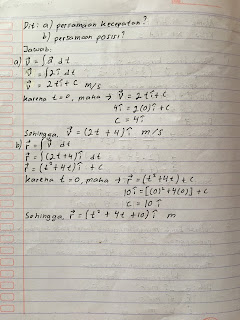 Dit: a) persamaan kecepatan?
b) persamaan posisi?
Jawab:
a) v⃗ = ∫ a⃗ dt
v⃗ = ∫ 2î dt
v⃗ = 2tî + c m/s
karena t=0, maka → v⃗ = 2tî + c
4î = 2(0)î + c
c = 4î
Sehingga, v⃗ = (2t + 4) î m/s.
b) r⃗ = ∫ v⃗ dt
r⃗ = ∫ (2t+4)î dt
r⃗ = (t² + 4t)î + c
karena t=0, maka → r⃗ = (t² + 4t) + c
10î = [(0)² + 4(0)] + c
c = 10î
Sehingga, r⃗ = (t² + 4t + 10) î m